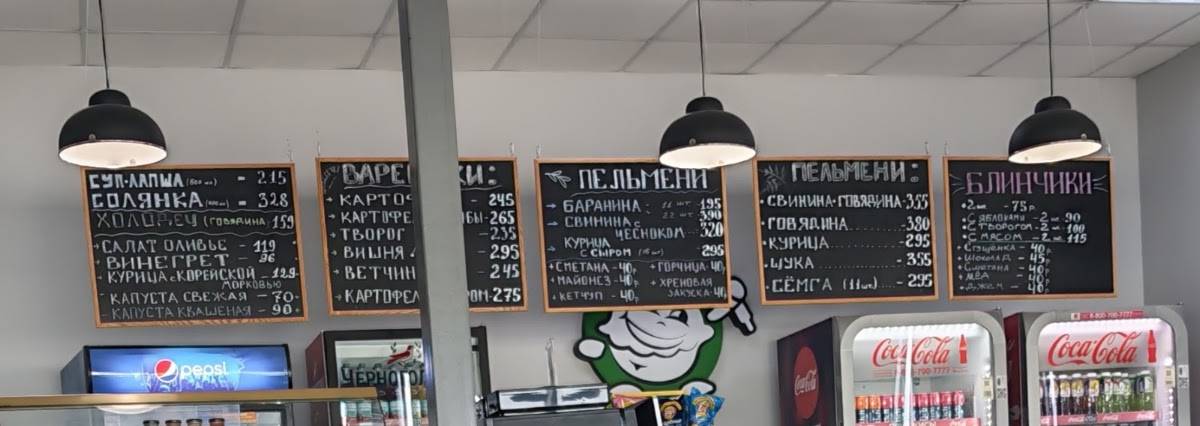 СУП-ЛАПША (500 мл) = 215
СОЛЯНКА = 328
ХОЛОДЕЦ (ГОВЯДИНА) 159
САЛАТ ОЛИВЬЕ - 119
ВИНЕГРЕТ - 96
КУРИЦА С КОРЕЙСКОЙ - 129
МОРКОВЬЮ
КАПУСТА СВЕЖАЯ - 70
КАПУСТА КВАШЕНАЯ - 90
ВАРЕ КИ:
КАРТО - 245
КАРТОФЕЛ БЫ-265
ТВОРОГ - 235
ВИШНЯ - 295
ВЕТЧИН - 245
КАРТОФЕЛ ОМ-275
ПЕЛЬМЕНИ
БАРАНИНА 11 шт. 195
22 шт. 390
СВИНИНА С ЧЕСНОКОМ 320
КУРИЦА
С СЫРОМ 295
СМЕТАНА - 40р + ГОРЧИЦА - 40р
МАЙОНЭЗ - 40р + ХРЕНОВАЯ
КЕТЧУП - 40р ЗАКУСКА - 40р
ПЕЛЬМЕНИ:
СВИНИНА-ГОВЯДИНА-355
ГОВЯДИНА 380
КУРИЦА 295
ЩУКА 355
СЁМГА (11шт.) - 295
БЛИНЧИКИ
2 шт. - 75р.
С ЯБЛОКАМИ - 2 шт. 90
С ТВОРОГОМ - 2 шт. 100
С МЯСОМ - 2 шт. 115
СГУЩЕНКА - 40р
ШОКОЛАД - 45р
СМЕТАНА - 40р
МЁД - 40р
ДЖЕМ - 40р
pepsi
ЧЕРНОГО
Coca-Cola
Coca-Cola
8-800-700-7777
Coca-Cola